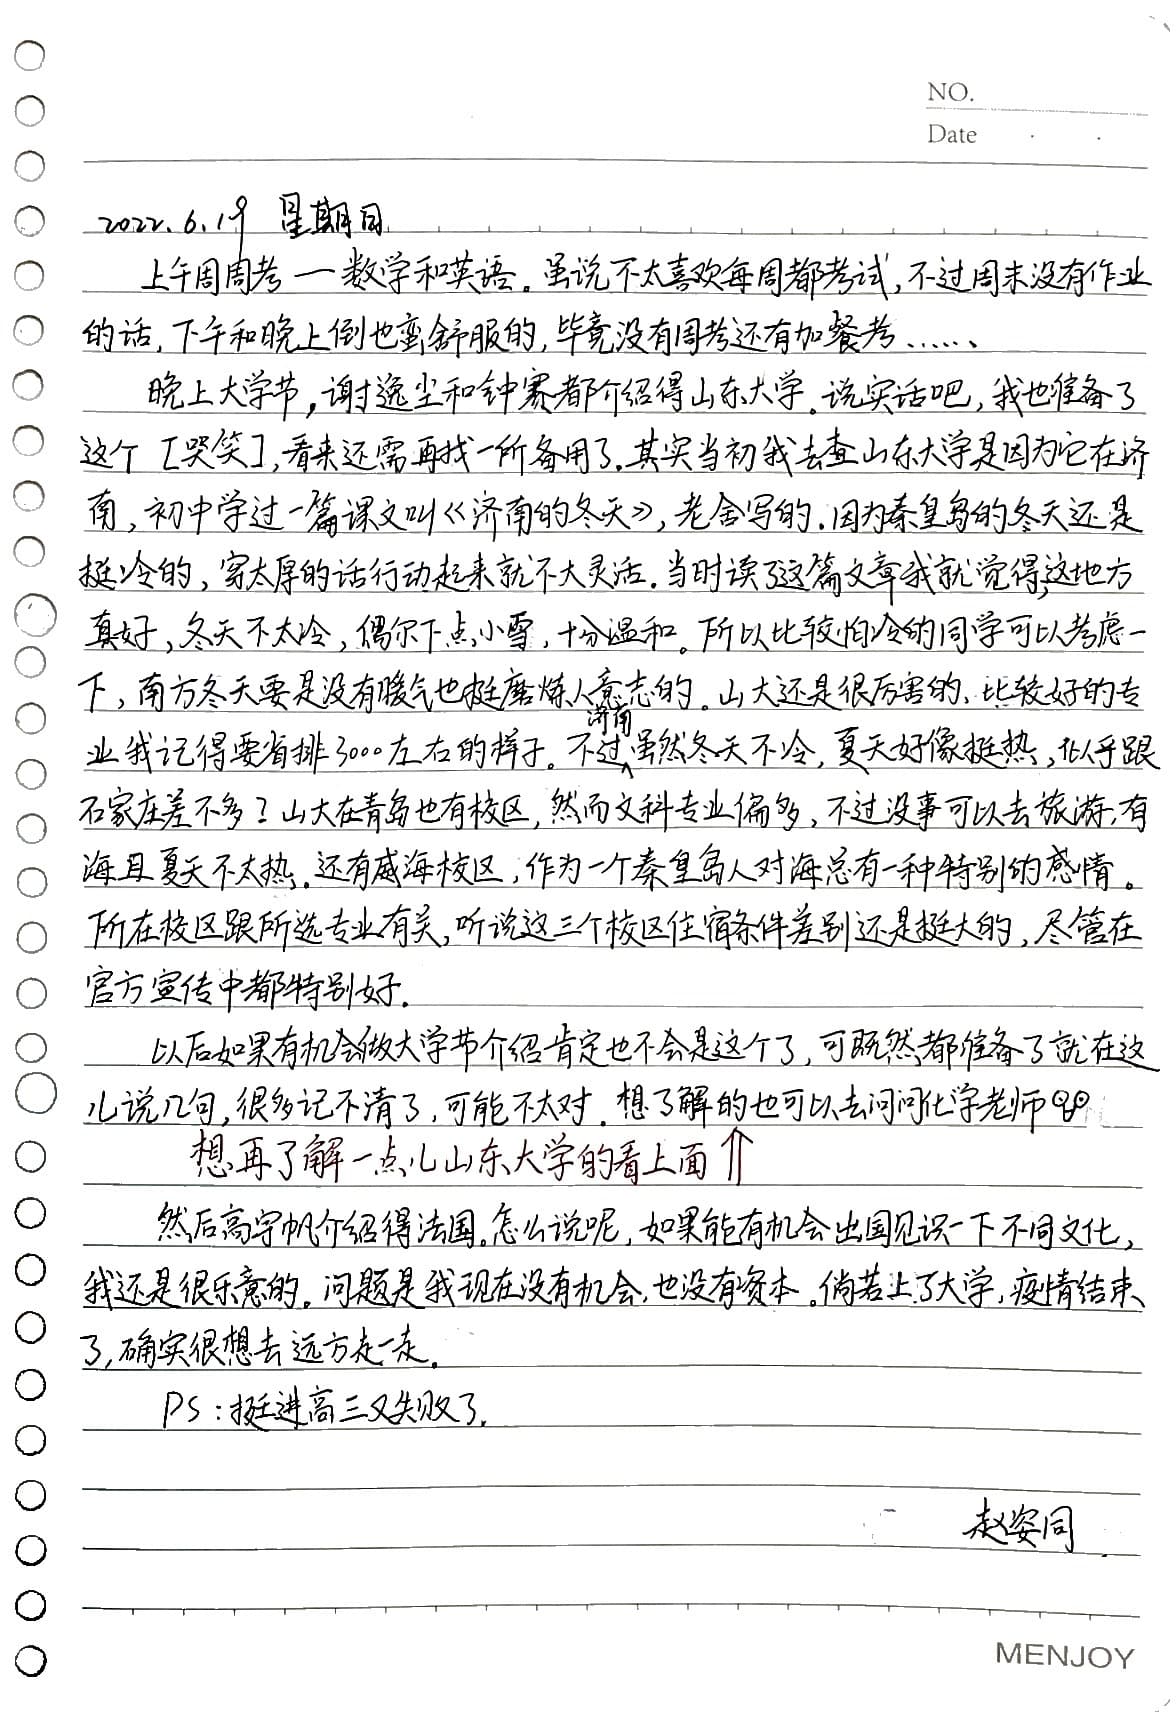 NO.
Date
2022.6.19 星期日
上午周周考一数学和英语。虽说不太喜欢每周都考试,不过周末没有作业
的话,下午和晚上倒也蛮舒服的,毕竟没有周考还有加餐考……
晚上大学节,谢逸尘和钟赛都介绍得山东大学。说实话吧,我也准备了
这个[哭笑],看来还需再找一所备用了.其实当初我去查山东大学是因为它在济
南,初中学过一篇课文叫《济南的冬天》,老舍写的.因为秦皇岛的冬天还是
挺冷的,穿太厚的话行动起来就不大灵活.当时读了这篇文章我就觉得,这地方
真好,冬天不太冷,偶尔下点小雪,十分温和。所以比较怕冷的同学可以考虑一
下,南方冬天要是没有暖气也挺磨炼人意志的。山大还是很厉害的,比较好的专
业我记得要省排3000左右的样子。不过济南虽然冬天不冷,夏天好像挺热,似乎跟
石家庄差不多?山大在青岛也有校区,然而文科专业偏多,不过没事可以去旅游,有
海且夏天不太热.还有威海校区,作为一个秦皇岛人对海总有一种特别的感情。
所在校区跟所选专业有关,听说这三个校区住宿条件差别还是挺大的,尽管在
官方宣传中都特别好.
以后如果有机会做大学节介绍肯定也不会是这个了,可既然都准备了就在这
儿说几句,很多记不清了,可能不太对.想了解的也可以去问问化学老师
想再了解一点儿山东大学的看上面⇑
然后高宇帆介绍得法国。怎么说呢,如果能有机会出国见识一下不同文化,
我还是很乐意的。问题是我现在没有机会,也没有资本.倘若上了大学,疫情结束
了,确实很想去远方走一走.
PS:挺进高三又失败了.
赵姿同
MENJOY